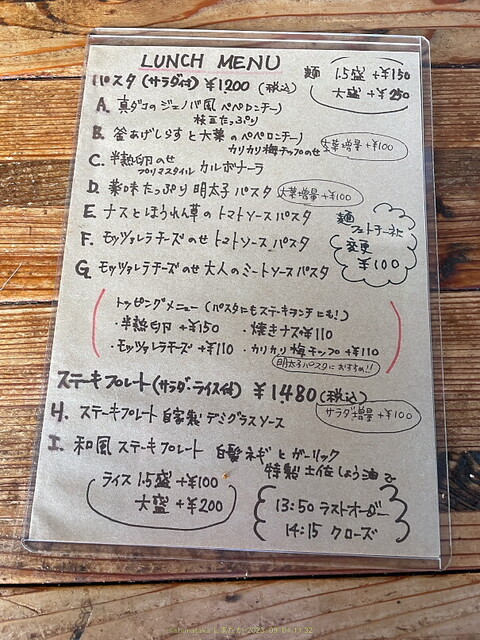 LUNCH MENU
麺 1.5盛 +¥150
大盛 +¥250
パスタ(サラダ付) ¥1200 (税込)
A. 真ダコのジェノバ風 ペペロンチーノ
枝豆たっぷり
B. 釜あげしらすと大葉のペペロンチーノ
カリカリ梅チップのせ
大葉増量 +¥100
C. 半熟卵のせ
プリマスタイル カルボナーラ
D. 薬味たっぷり明太子パスタ
大葉増量 +¥100
E. ナスとほうれん草のトマトソースパスタ
F. モッツァレラチーズのせ トマトソースパスタ
G. モッツァレラチーズのせ 大人のミートソースパスタ
麺
フェトチーネに
変更
¥100
トッピングメニュー (パスタにもステーキランチにも!)
・半熟卵 +¥150 ・焼きナス+¥110
・モッツァレラチーズ +¥110 ・カリカリ梅チップ +¥110
明太子パスタにおすすめ!!
ステーキプレート(サラダ・ライス付) ¥1480(税込)
サラダ増量 +¥100
H. ステーキプレート 自家製 デミグラスソース
I. 和風ステーキプレート 白髪ネギとガーリック
特製 土佐しょう油で
ライス 1.5盛 +¥100
大盛 +¥200
13:50 ラストオーダー
14:15 クローズ